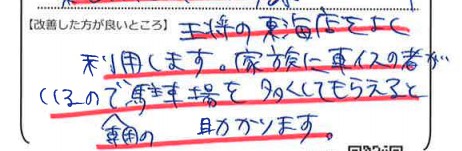 【改善した方が良いところ】 王将の東海店をよく
利用します。家族に車イスの者が
いるので専用の駐車場を多くしてもらえると
助かります。